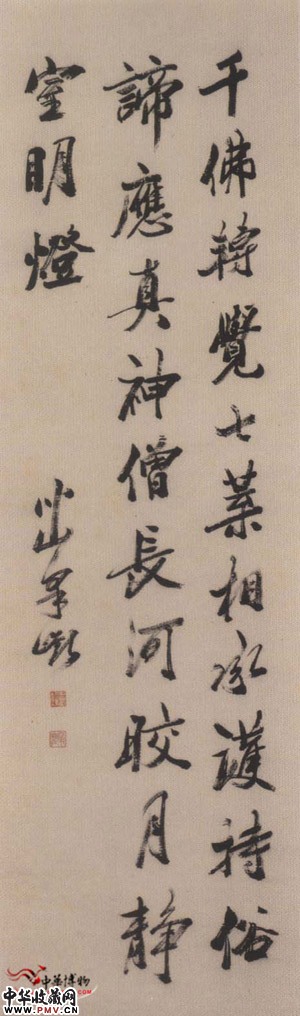 千佛将覺七葉相承護持俗
諦應真神僧長河皎月静
室明燈
中华博物
中华收藏网
WWW.PMV.CN